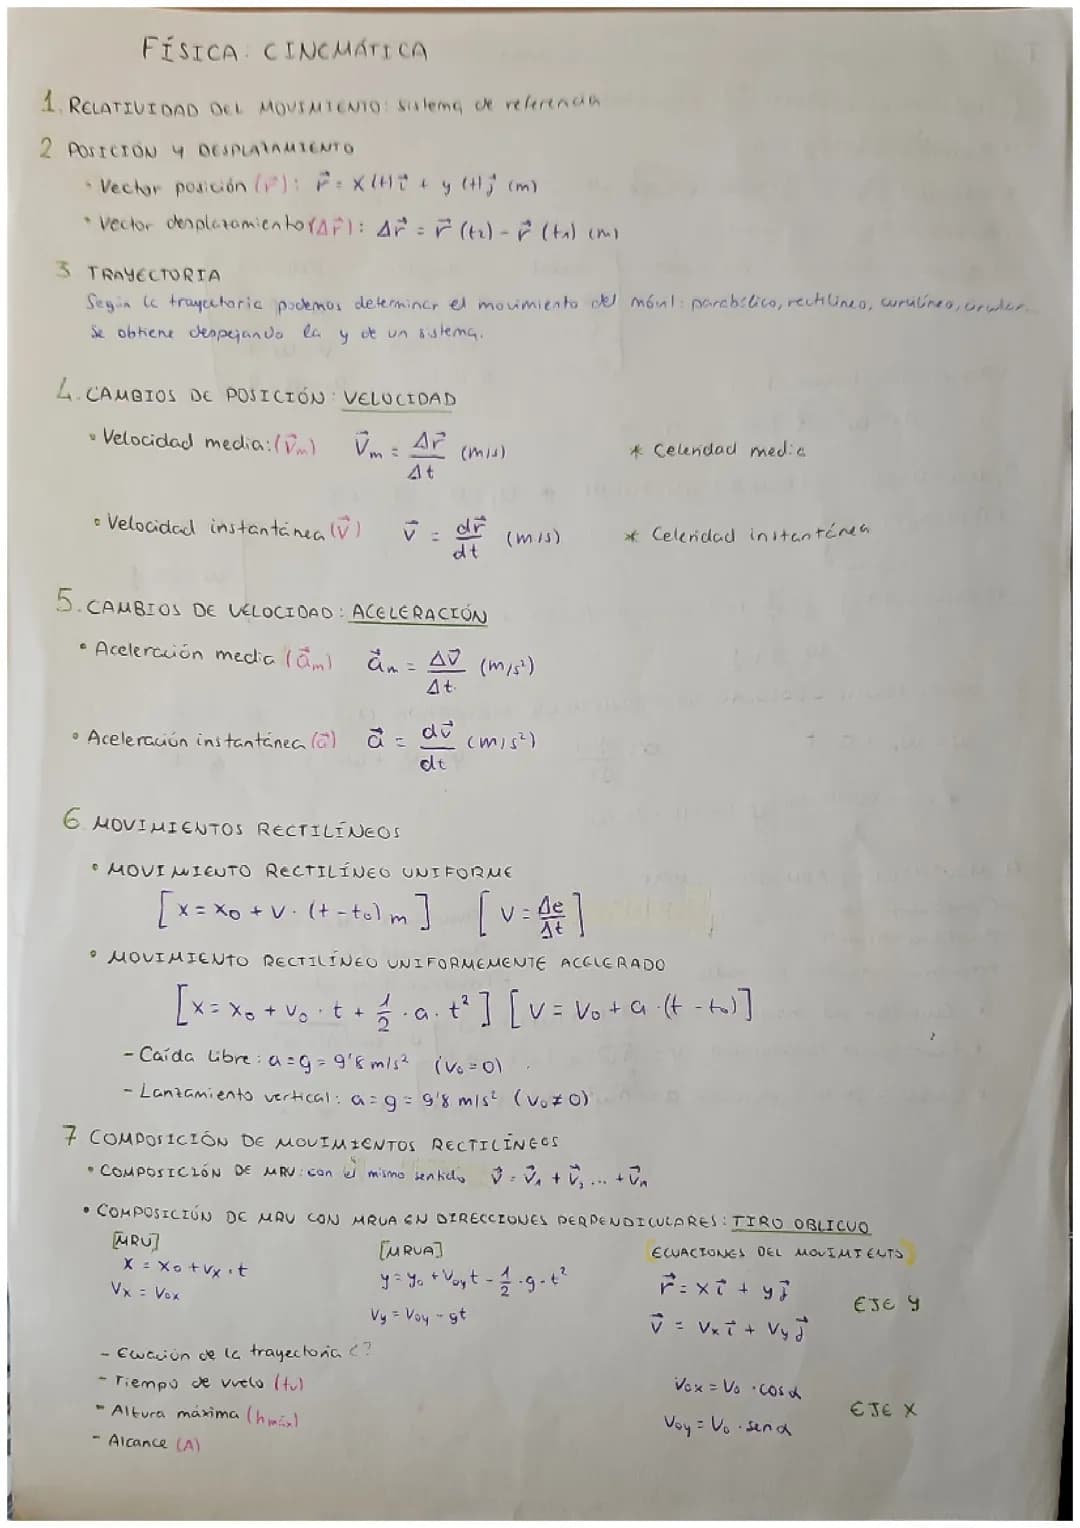 FÍSICA: CINEMÁTICA
1. RELATIVIDAD DEL MOVIMIENTO: sistema de referencia
2 POSICIÓN Y DESPLAZAMIENTO
• Vector posición (r⃗): r⃗ = x(t)i⃗ + y(t)j⃗ (m)
• Vector desplazamiento (Δr⃗): Δr⃗ = r⃗(t₂) - r⃗(t₁) (m)
3 TRAYECTORIA
Según la trayectoria podemos determinar el movimiento del móvil: parabólico, rectilíneo, curvilíneo, circular.
Se obtiene despejando la y de un sistema.
4. CAMBIOS DE POSICIÓN: VELOCIDAD
• Velocidad media: (v⃗m) v⃗m = Δr⃗/Δt (m/s) * Celeridad media
• Velocidad instantánea (v⃗) v⃗ = dr⃗/dt (m/s) * Celeridad instantánea
5. CAMBIOS DE VELOCIDAD: ACELERACIÓN
• Aceleración media (a⃗m) a⃗m = Δv⃗/Δt (m/s²)
• Aceleración instantánea (a⃗) a⃗ = dv⃗/dt (m/s²)
6 MOVIMIENTOS RECTILÍNEOS
• MOVIMIENTO RECTILÍNEO UNIFORME
[x = x₀ + v · (t - t₀) m] [v = Δe/Δt]
• MOVIMIENTO RECTILÍNEO UNIFORMEMENTE ACELERADO
[x = x₀ + v₀ · t + 1/2 · a · t²] [v = v₀ + a · (t - t₀)]
- Caída libre: a = g = 9'8 m/s² (v₀ = 0)
- Lanzamiento vertical: a = g = 9'8 m/s² (v₀ ≠ 0)
7 COMPOSICIÓN DE MOVIMIENTOS RECTILÍNEOS
• COMPOSICIÓN DE MRU: con el mismo sentido v⃗ = v⃗₁ + v⃗₂ ... + v⃗n
• COMPOSICIÓN DE MRU CON MRUA EN DIRECCIONES PERPENDICULARES: TIRO OBLICUO
[MRU] [MRUA] [ECUACIONES DEL MOVIMIENTO]
x = x₀ + vx · t y = y₀ + v₀y t - 1/2 · g · t² r⃗ = x i⃗ + y j⃗
vx = v₀x vy = v₀y - gt v⃗ = vx i⃗ + vy j⃗ EJE y
- Ecuación de la trayectoria ¿?
- Tiempo de vuelo (tv) v₀x = v₀ · cos α
- Altura máxima (hmáx) v₀y = v₀ · sen α EJE X
- Alcance (A)